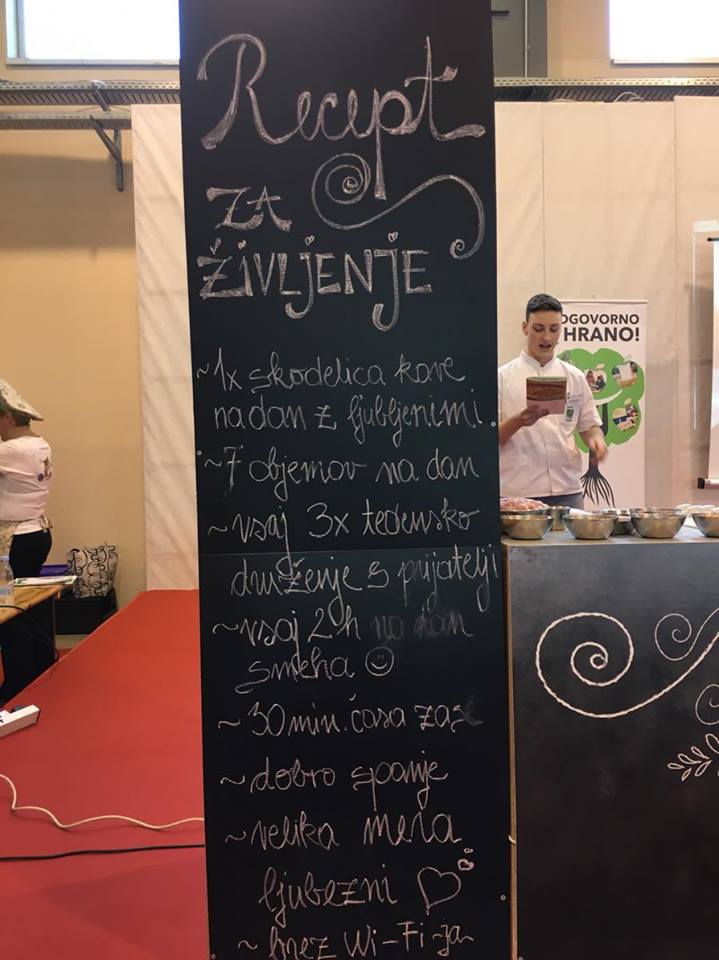 Recept
ZA
ŽIVLJENJE
~1x skodelica kave
na dan z ljubljenimi.
~7 objemov na dan
~vsaj 3x tedensko
druženje s prijatelji
~vsaj 2h na dan
smeha ☺
~30 min. časa zase
~dobro spanje
~velika mera
ljubezni ♡
~brez Wi-Fi-ja
ODGOVORNO
HRANO!